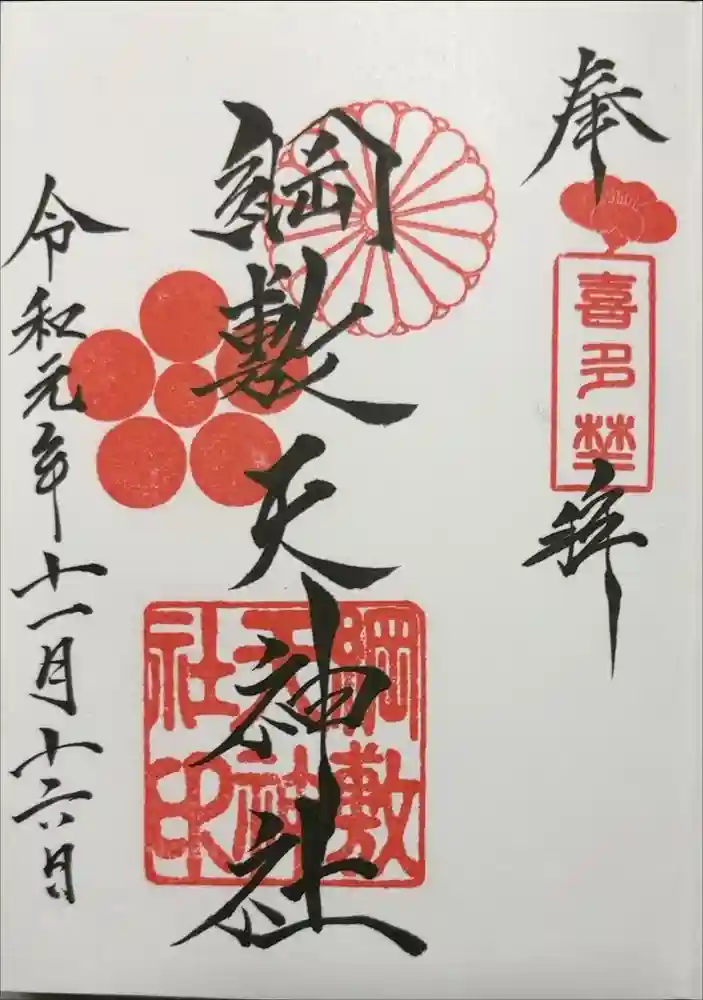 奉
喜多埜
拝
綱敷天神社
綱敷
天神
社印
令和元年十一月十六日